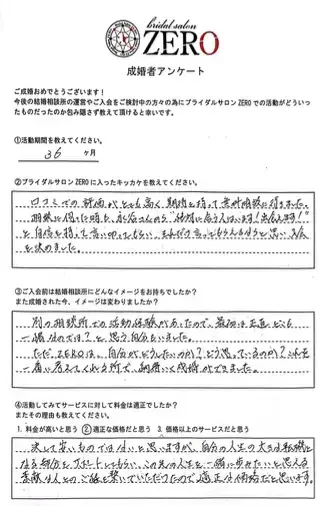 bridal salon
ZERO
成婚者アンケート
ご成婚おめでとうございます!
今後の結婚相談所の運営やご入会をご検討中の方々の為にブライダルサロンZEROでの活動がどういっ
たものだったのか包み隠さず教えて頂けると幸いです。
①活動期間を教えてください。
36 ヶ月
②ブライダルサロンZEROに入ったキッカケを教えてください。
口コミでの評価がとても高く期待を持って無料相談に行きました。
相談に伺った時も、
と自信を持って言い切ってもらい、
を決めました。
③ご入会前は結婚相談所にどんなイメージをお持ちでしたか?
また成婚された今、イメージは変わりましたか?
別の相談所での活動経験があったので、最初は正直どこも
一緒なのでは?と思う自分もいました。
ただ、ZEROは、自分がどうしたいのか?どう思っているのか?これを
一番に考えてくれる所で、納得いく成婚ができました。
④活動してみてサービスに対して料金は適正でしたか?
またその理由も教えてください。
1. 料金が高いと思う ②適正な価格だと思う 3. 価格以上のサービスだと思う
決して安いものではないと思いますが、自分の人生の大きな転機と
なる部分をサポートしてもらい、この先の人生を一緒に歩みたいと思える
素敵な人とのご縁を繋いでいただけたので適正な価格だと思います。